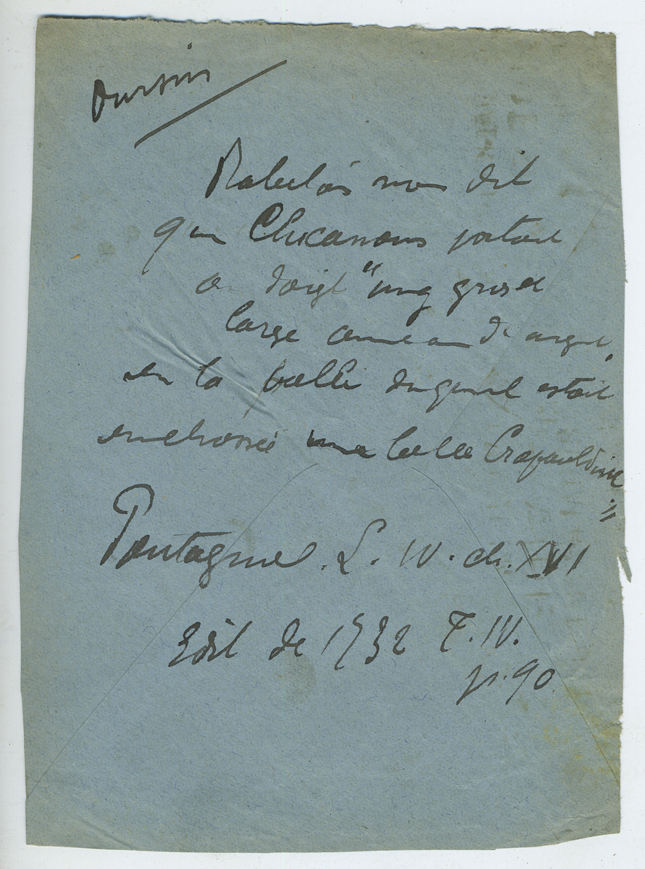 Oursin
Rabelais nous dit
que Chicanous portait
au doigt "ung gros et
large anneau d'argent,
en la palle duquel estoit
enchassée une belle Crapauldine
"
Pantagruel. L. IV. ch. XVI
Edit de 1732 T. IV.
p. 90